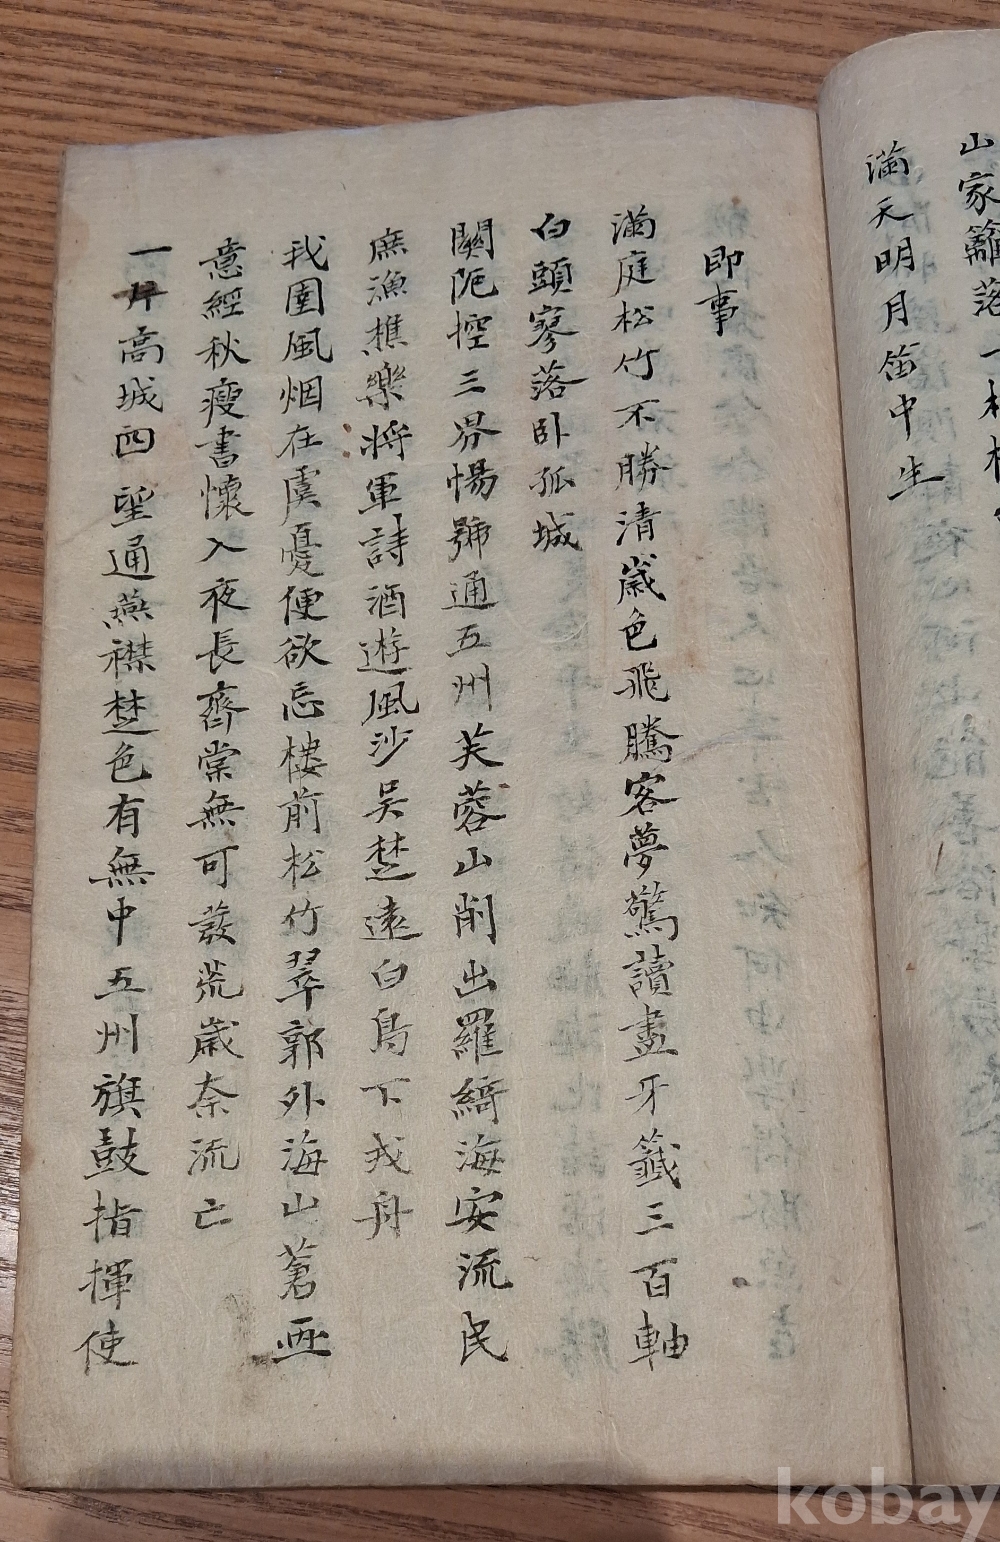 山家籬落一
滿天明月笛中生
即事
滿庭松竹不勝清歲色飛騰客夢驚讀畫牙籤三百軸
白頭寥落臥孤城
關阨控三界暢號通五州芙蓉山削出羅縎海安流民
庶漁樵樂將軍詩酒遊風沙吳楚遠白鳥下戎舟
我園風烟在虞憂便欲忘樓前松竹翠郭外海山蒼画
意經秋瘦書懷入夜長齊棠無可發荒歲奈流亡
一片高城四望通燕襟楚色有無中五州旗鼓指揮使
kobay